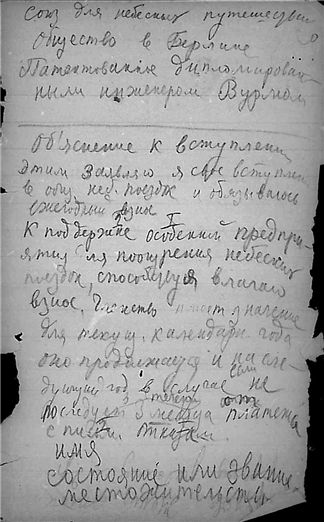 союз для небесных путешествий
общество в Берлине
Патентованные дипломирован
ным инженером Вурмом
Объяснение к вступлени
Этим Заявляю я свое вступлен
в общ. неб. поездок и обязываюсь
ежегодный взнос
к поддержке особенной предпри-
ятия для поощрения небесных
поездок, способствуя влагаю
взнос. Членство имеет значение
для текущ. календарн. года
оно продолжается и на сле-
дующий год в случае если не
последует 3 месяца платежа
с письм. отказом.
имя
состояние или звание
местожительство